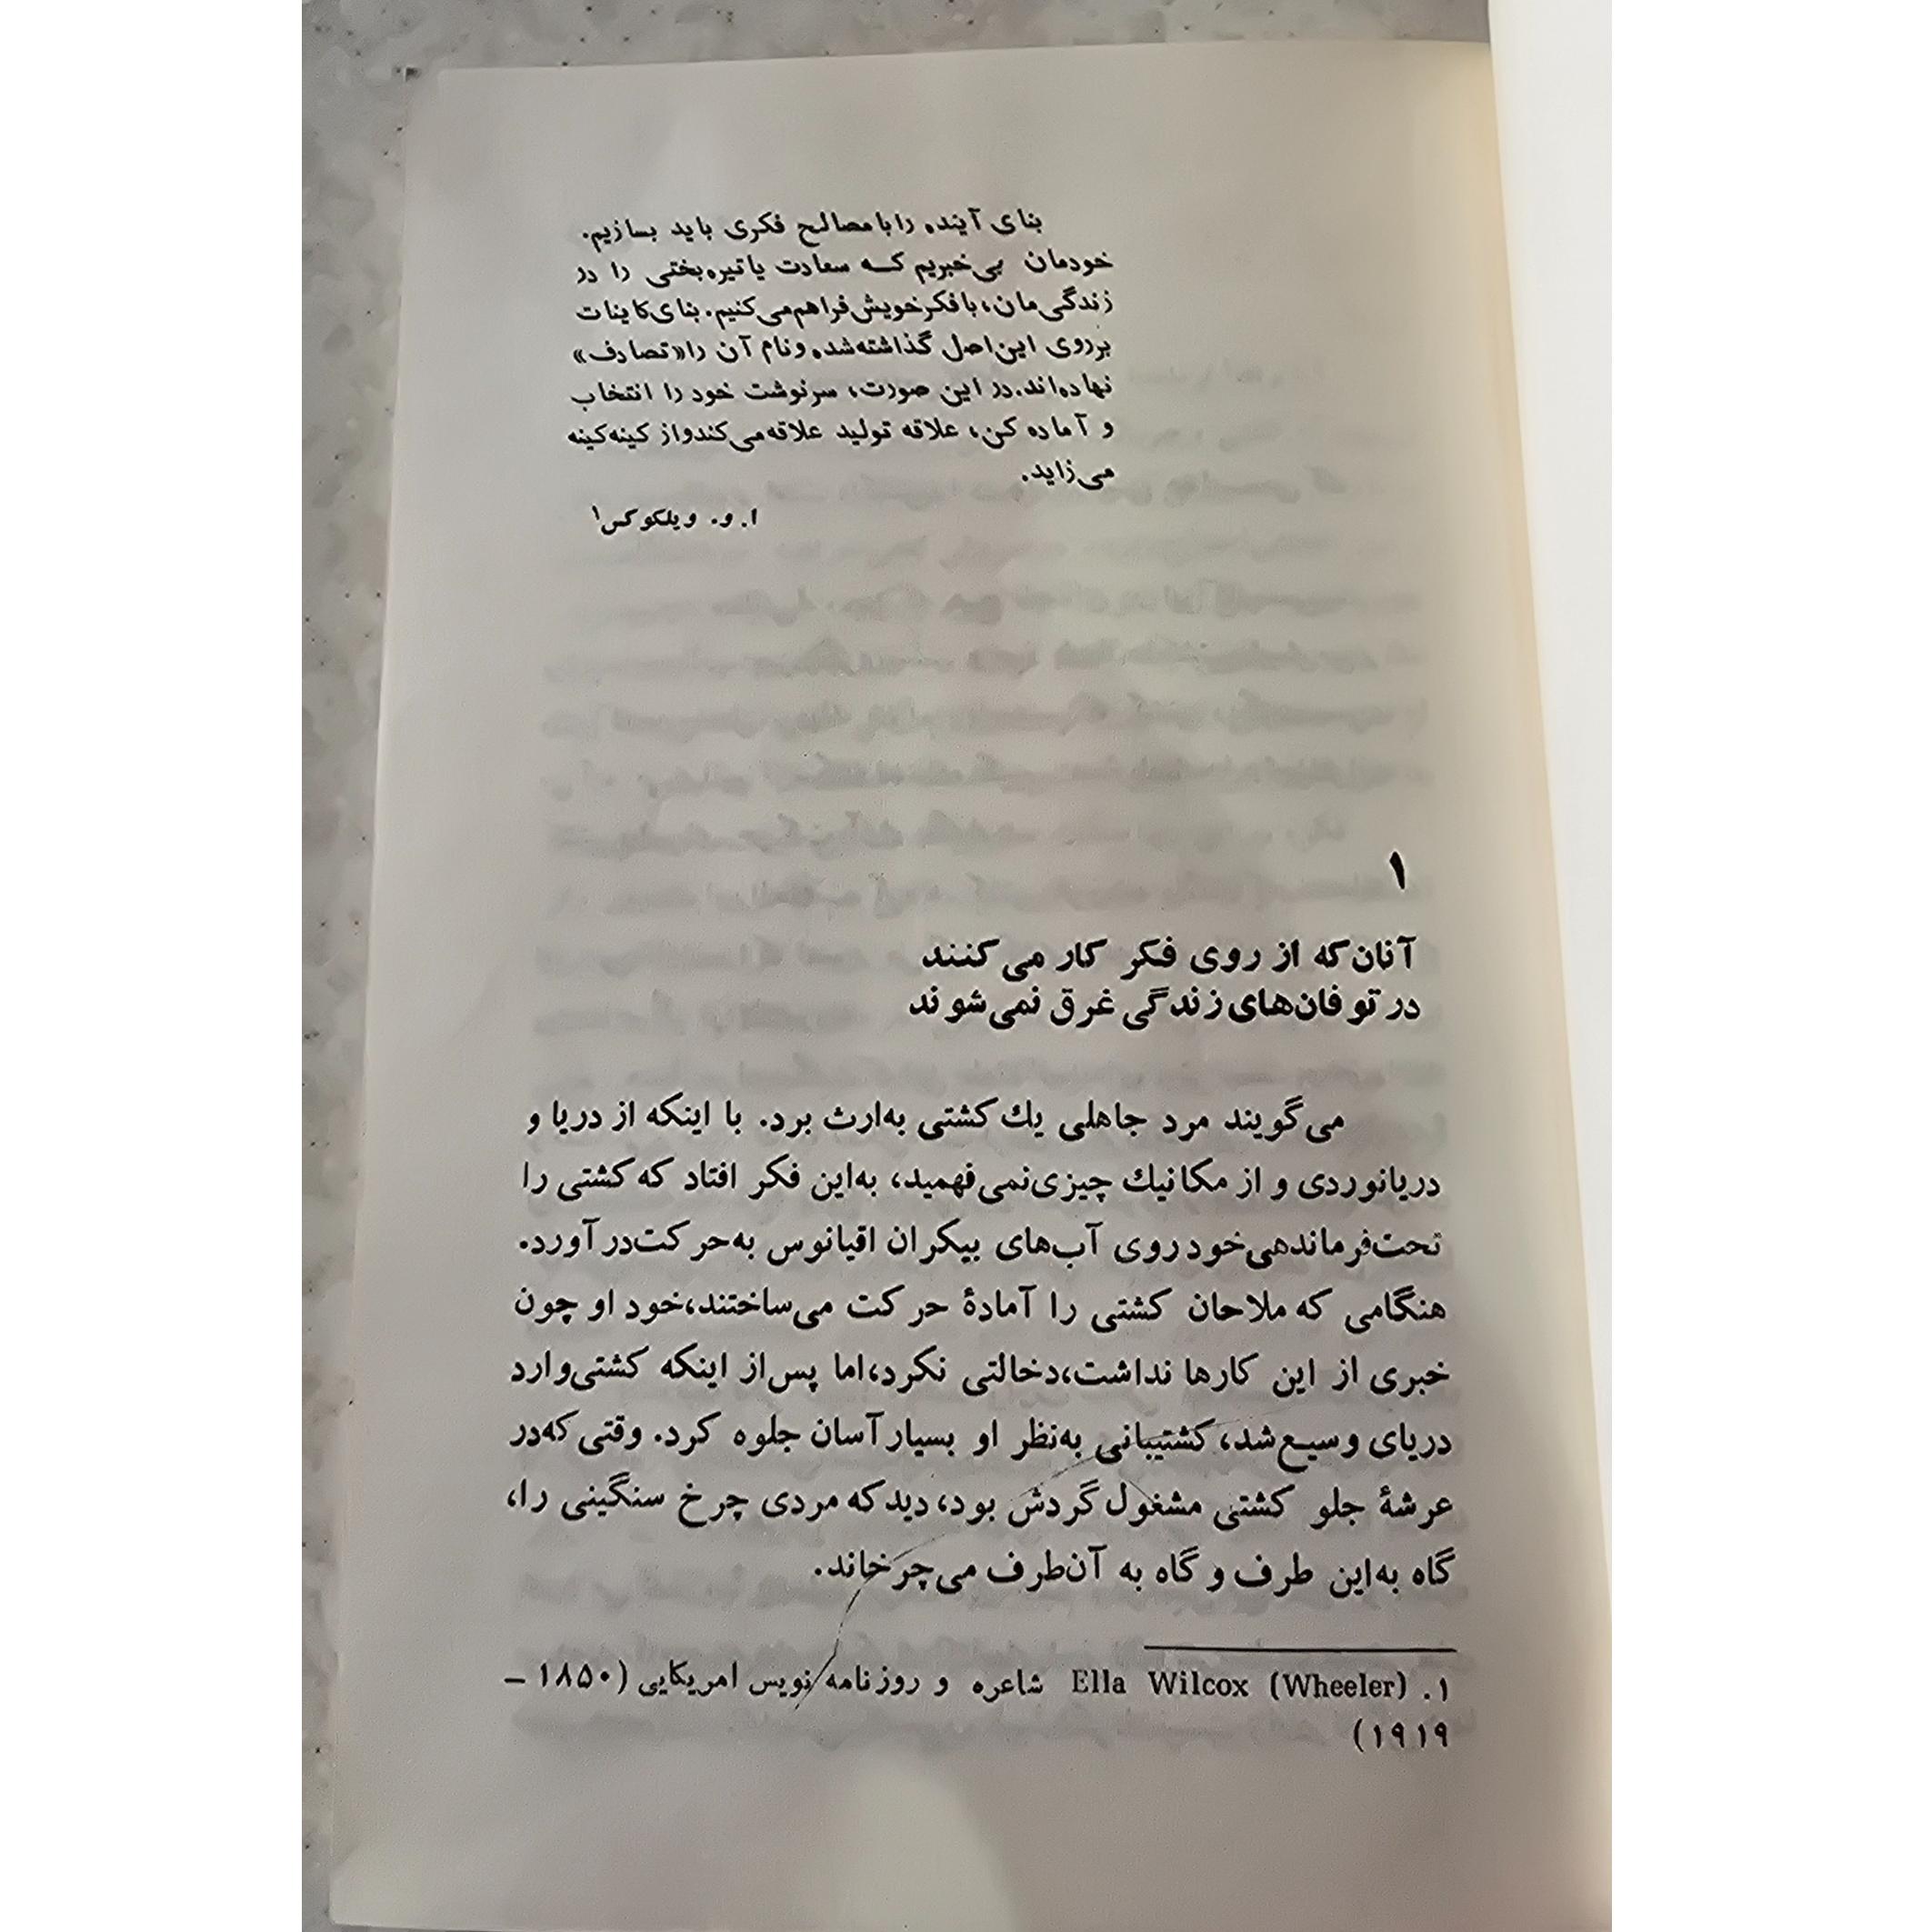 بنای آینده را با مصالح فکری باید بسازیم.
خودمان بی‌خبریم که سعادت یا تیره‌بختی را در
زندگی‌مان، با فکر خویش فراهم می‌کنیم. بنای کاینات
بر روی این اصل گذاشته شده و نام آن را «تصادف»
نهاده‌اند. در این صورت، سرنوشت خود را انتخاب
و آماده کن، علاقه تولید علاقه می‌کند و از کینه کینه
می‌زاید.
ا. و. ویلکوکس۱
۱
آنان که از روی فکر کار می‌کنند
در توفان‌های زندگی غرق نمی‌شوند
می‌گویند مرد جاهلی یك کشتی به‌ارث برد. با اینکه از دریا و
دریانوردی و از مکانیك چیزی نمی‌فهمید، به‌این فکر افتاد که کشتی را
تحت فرماندهی خود روی آب‌های بیکران اقیانوس به‌حرکت درآورد.
هنگامی که ملاحان کشتی را آمادهٔ حرکت می‌ساختند، خود او چون
خبری از این کارها نداشت، دخالتی نکرد، اما پس‌از اینکه کشتی وارد
دریای وسیع شد، کشتیبانی به‌نظر او بسیار آسان جلوه کرد. وقتی که در
عرشهٔ جلو کشتی مشغول گردش بود، دید که مردی چرخ سنگینی را،
گاه به‌این طرف و گاه به آن‌طرف می‌چرخاند.
۱. Ella Wilcox (Wheeler) شاعره و روزنامه‌نویس امریکایی (۱۸۵۰ –
۱۹۱۹)